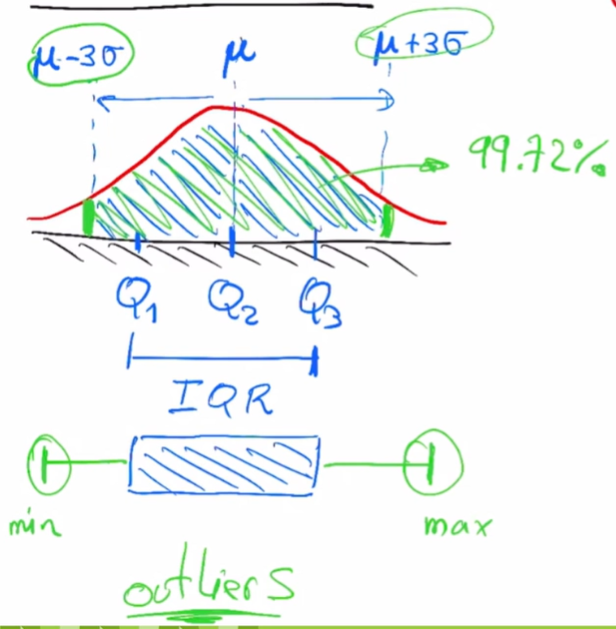 μ-3σ μ μ+3σ
99.72%
Q1 Q2 Q3
IQR
min max
outliers